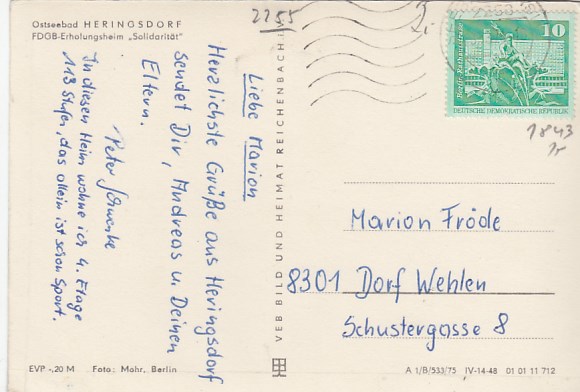 Ostseebad HERINGSDORF
FDGB-Erholungsheim „Solidarität"
2255
Liebe Marion
Herzlichste Grüße aus Heringsdorf
sendet Dir, Andreas u. Deinen
Eltern.
Peter
In diesen Heim wohne ich 4. Etage
113 Stufen, das allein ist schon Sport.
EVP -,20 M Foto: Mohr, Berlin
VEB BILD UND HEIMAT REICHENBACH i. V.
10
Berlin-Rathausstrasse
DEUTSCHE DEMOKRATISCHE REPUBLIK
1843
Marion Fröde
8301 Dorf Wehlen
Schustergasse 8
A 1/B/533/75 IV-14-48 01 01 11 712